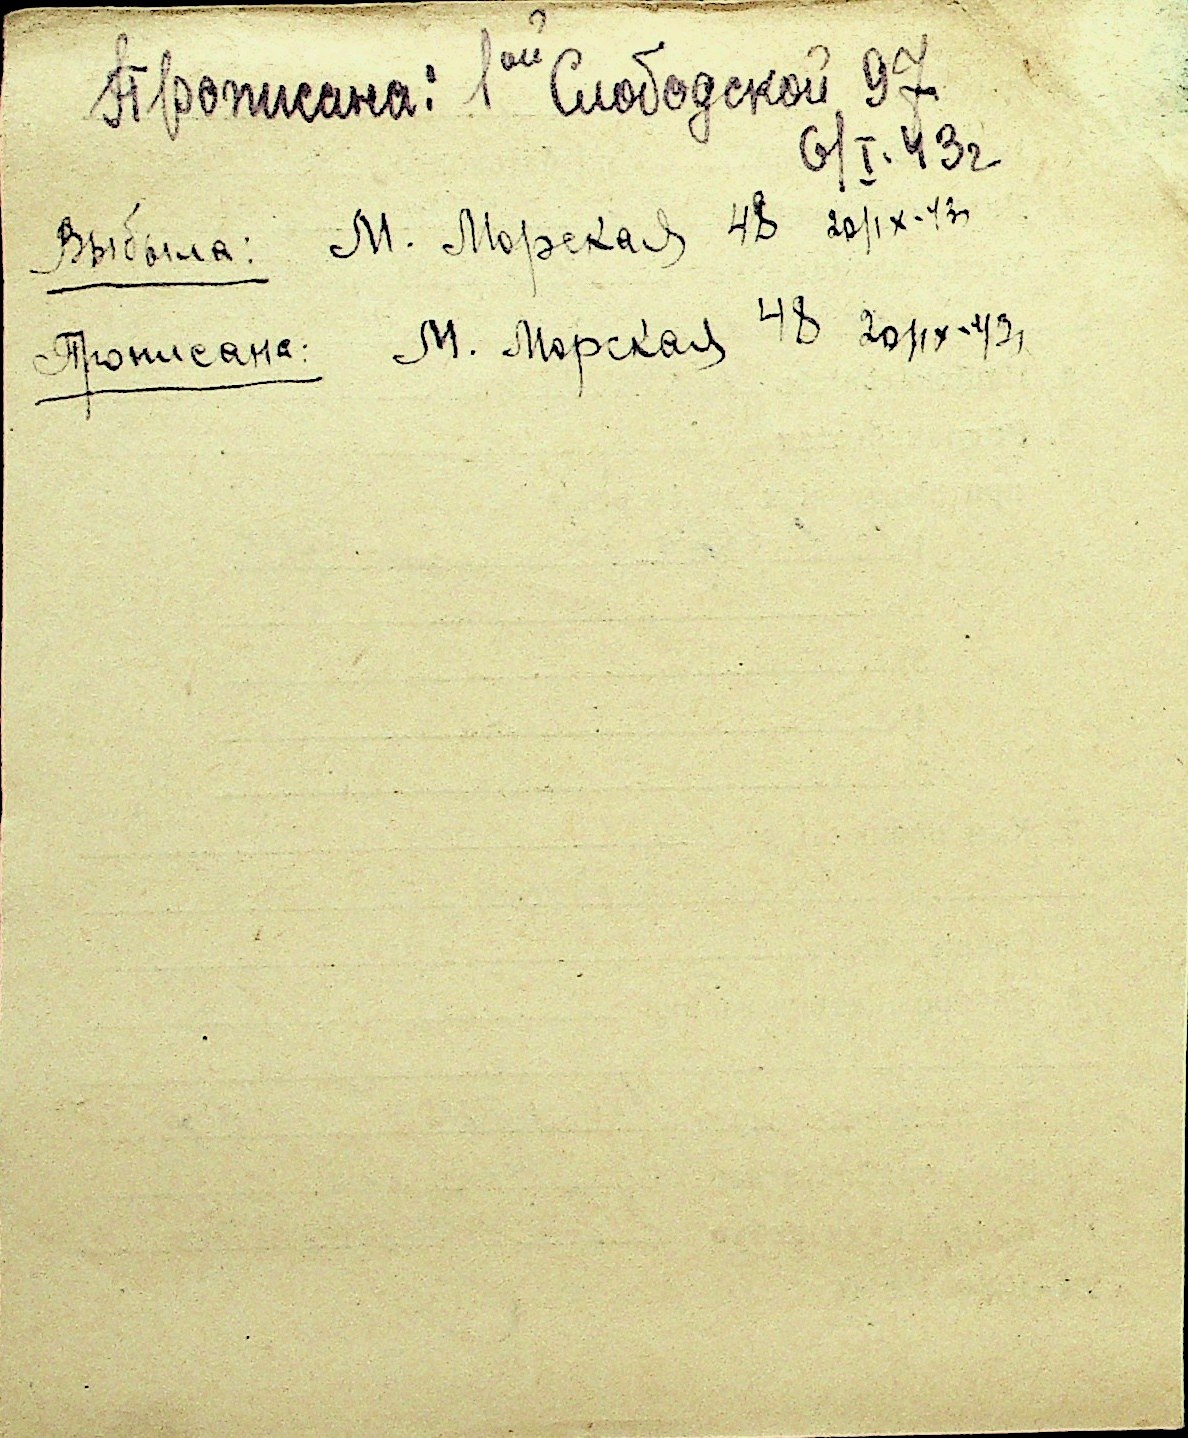 Прописана: 1ой Слободской 97
6/I. 43г
Выбыла: М. Морская 48 20/IX-43г
Прописана: М. Морская 48 20/IX-43г